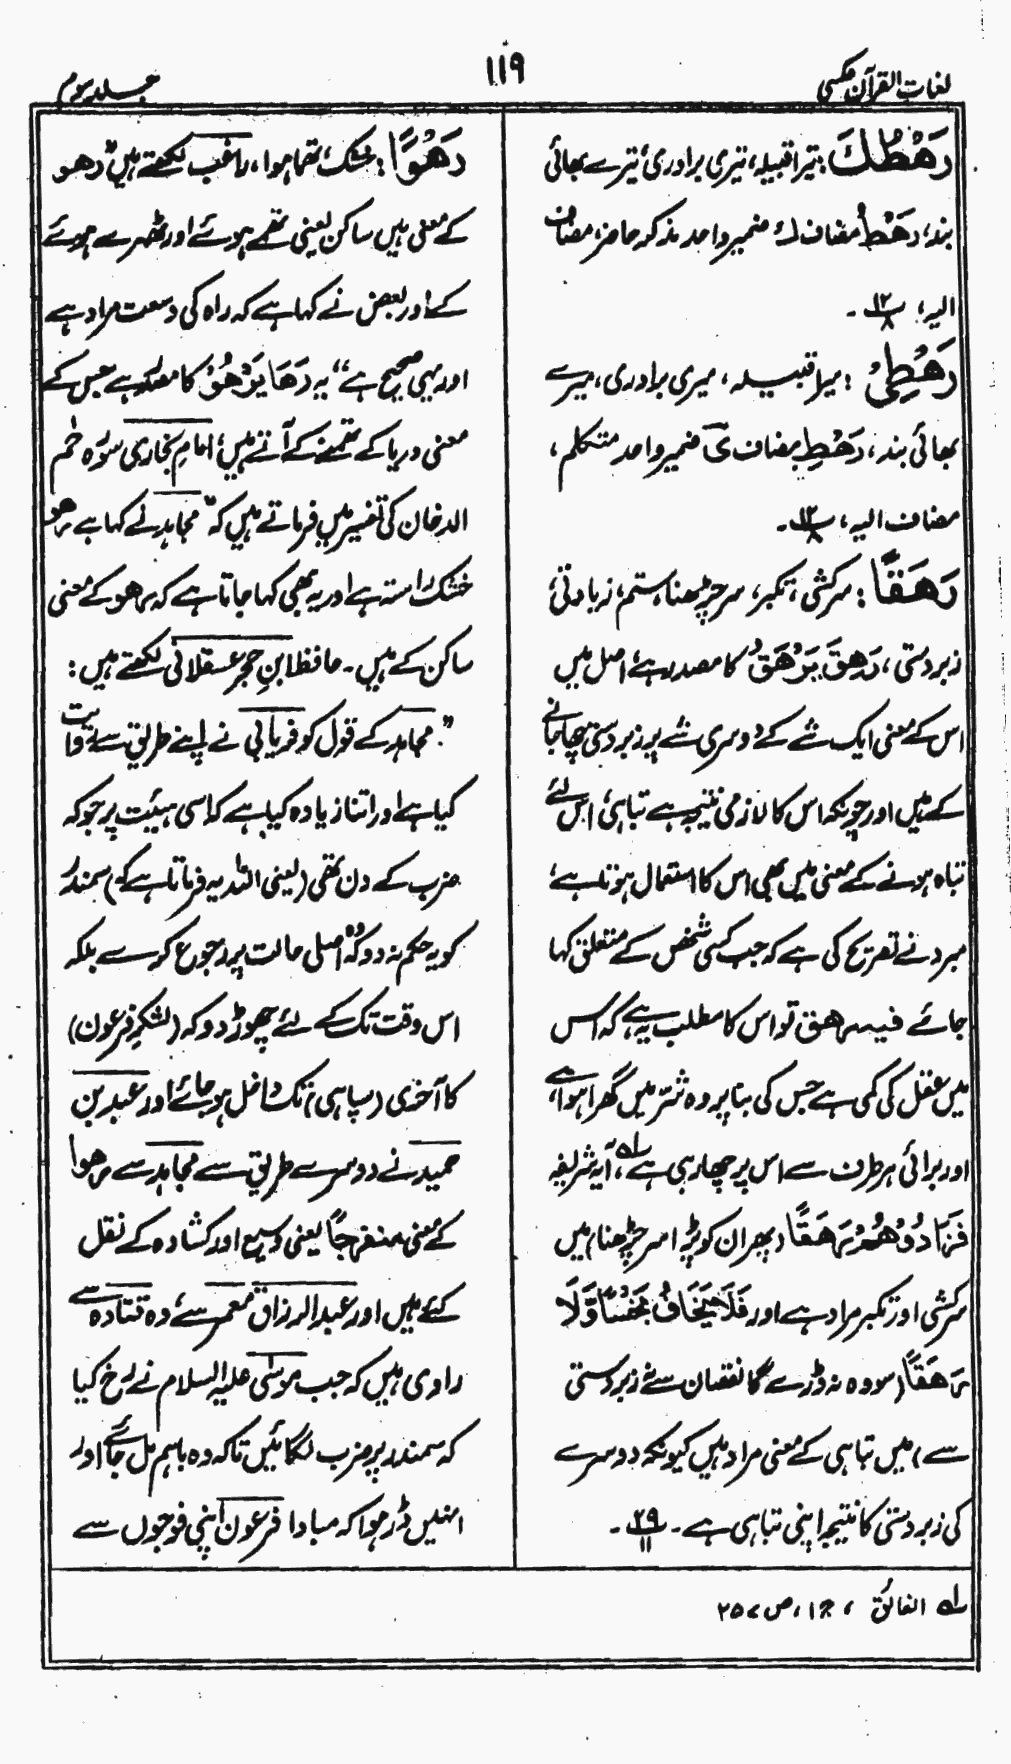 لغات القرآن عکسی
۱۱۹
جلد سوم
رَهْطُكَ : تیرا قبیلہ، تیری برادری، تیرے بھائی
بند، رَهْطُ مضاف ك ضمیر واحد مذکر حاضر مضاف
الیہ، ۱۲/۸ ۔
رَهْطِیْ : میرا قبیلہ، میری برادری، میرے
بھائی بند، رَهْطِ مضاف ی ضمیر واحد متکلم،
مضاف الیہ، ۱۲/۸ ۔
رَهَقًا : سرکشی، تکبر، سر چڑھنا، ستم، زیادتی،
زبردستی، رَهِقَ یَرْهَقُ کا مصدر ہے، اصل میں
اس کے معنی ایک شے کے دوسری شے پر زبردستی چھا جانے
کے ہیں اور چونکہ اس کا لازمی نتیجہ ہے تباہی، اس لئے
تباہ ہونے کے معنی میں بھی اس کا استعمال ہوتا ہے،
مبرد نے تصریح کی ہے کہ جب کسی شخص کے متعلق کہا
جائے فیہ رهق تو اس کا مطلب یہ ہے کہ اس
میں عقل کی کمی ہے جس کی بنا پر وہ شر میں گھرا ہوا ہے،
اور برائی ہر طرف سے اس پر چھا رہی ہے لہ، آیہ شریفہ
فَزَادُوْهُمْ رَهَقًا (پھر ان کو بڑا سر چڑھنا) میں
سرکشی اور تکبر مراد ہے اور فَلَا یَخَافُ بَخْسًا وَّلَا
رَهَقًا (سو وہ نہ ڈرے گا نقصان سے نہ زبردستی
سے) میں تباہی کے معنی مراد ہیں کیونکہ دوسرے
کی زبردستی کا نتیجہ اپنی تباہی ہے ۔ ۲۹/۱۱ ۔
رَهْوًا : خشک، تھما ہوا، راغب لکھتے ہیں "رهو
کے معنی ہیں ساکن یعنی تھمے ہوئے اور ٹھہرے ہوئے
کے اور بعض نے کہا ہے کہ راہ کی وسعت مراد ہے
اور یہی صحیح ہے" یہ رَهَا یَرْهُوْ کا مصدر ہے جس کے
معنی دریا کے تھمنے کے آتے ہیں، امام بخاری سورہ حٰم
الدخان کی تفسیر میں فرماتے ہیں کہ "مجاہد نے کہا ہے رهو
خشک راستہ ہے اور یہ بھی کہا جاتا ہے کہ رهو کے معنی
ساکن کے ہیں ۔ حافظ ابن حجر عسقلانی لکھتے ہیں :
"مجاہد کے قول کو فریابی نے اپنے طریق سے روایت
کیا ہے اور اتنا زیادہ کیا ہے کہ اسی ہیئت پر جو کہ
ضرب کے دن تھی (یعنی اللہ یہ فرماتا ہے کہ) سمندر
کو یہ حکم نہ دو کہ وہ اصلی حالت پر رجوع کرے بلکہ
اس وقت تک کے لئے چھوڑ دو کہ (لشکرِ فرعون)
کا آخری (سپاہی) تک داخل ہو جائے اور عبد بن
حمید نے دوسرے طریق سے مجاہد سے رهوا
کے معنی منفرجًا یعنی وسیع اور کشادہ کے نقل
کئے ہیں اور عبد الرزاق معمر سے، وہ قتادہ سے
راوی ہیں کہ جب موسٰی علیہ السلام نے رخ کیا
کہ سمندر پر ضرب لگائیں تاکہ وہ باہم مل جائے اور
انہیں ڈر ہوا کہ مبادا فرعون اپنی فوجوں سے
لہ الفائق ، ج ۱، ص ۲۵۷